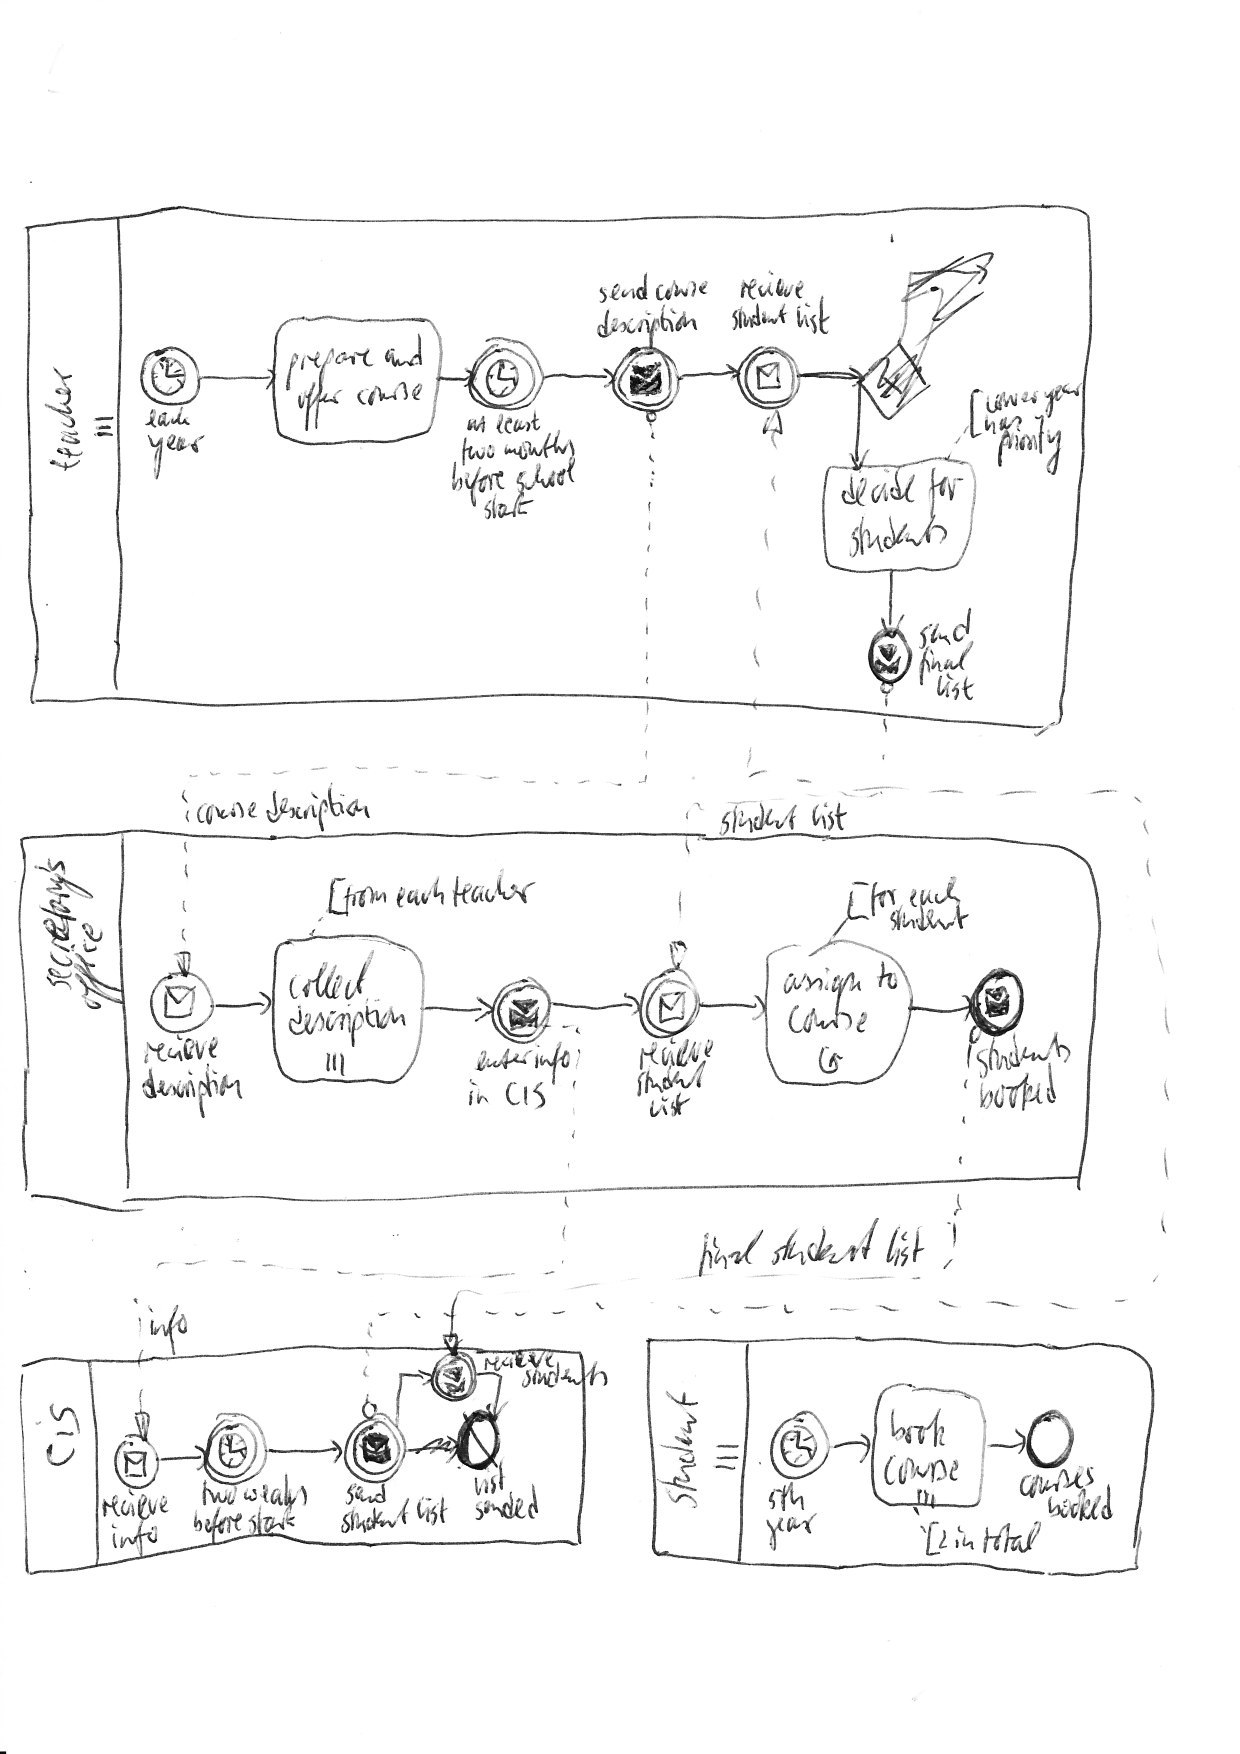 teacher
each
year
prepare and
offer course
at least
two months
before school
start
send course
description
recieve
student list
lower year
has
priority
decide for
students
send
final
list
course description
student list
secretary's
office
recieve
description
[from each teacher
collect
description
enter info
in CIS
recieve
student
list
[for each
student
assign to
course
students
booked
final student list
info
CIS
recieve
info
two weeks
before start
send
student list
recieve
students
list
sended
student
5th
year
book
course
[2 in total
courses
booked